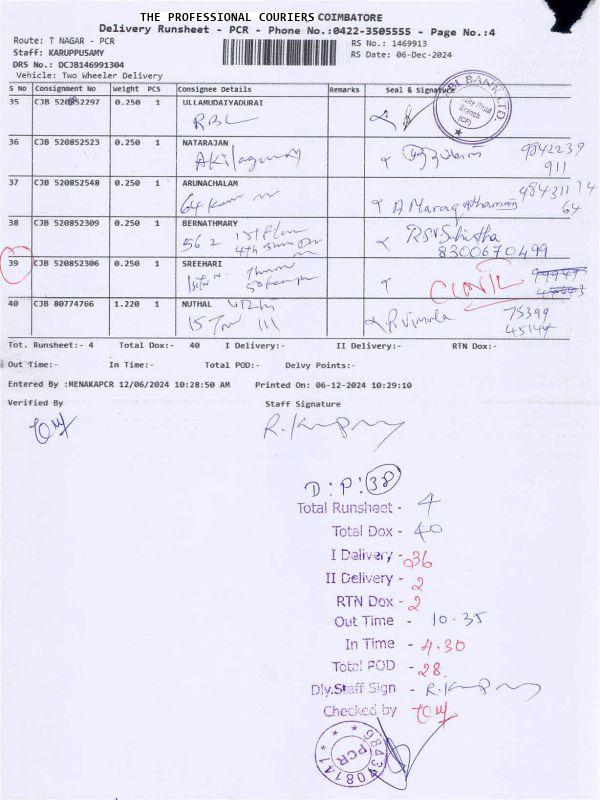 THE PROFESSIONAL COURIERS COIMBATORE
Delivery Runsheet - PCR - Phone No.:0422-3505555 - Page No.:4
Route: T NAGAR - PCR
RS No.: 1469913
Staff: KARUPPUSAMY
RS Date: 06-Dec-2024
DRS No.: DCJB146991304
Vehicle: Two Wheeler Delivery
S No Consignment No Weight PCS Consignee Details Remarks Seal & Signature
35 CJB 520852297 0.250 1 ULLAMUDAIYADURAI
RBL
36 CJB 520852523 0.250 1 NATARAJAN
9842239
911
37 CJB 520852548 0.250 1 ARUNACHALAM
98431174
64
38 CJB 520852309 0.250 1 BERNATHMARY
562
8300670499
39 CJB 520852306 0.250 1 SREEHARI
40 CJB 80774766 1.220 1 NUTHAL
P. Vimala
75399
45144
Tot. Runsheet:- 4 Total Dox:- 40 I Delivery:- II Delivery:- RTN Dox:-
Out Time:- In Time:- Total POD:- Delvy Points:-
Entered By :MENAKAPCR 12/06/2024 10:28:50 AM Printed On: 06-12-2024 10:29:10
Verified By Staff Signature
D:P:38
Total Runsheet - 4
Total Dox - 40
I Delivery - 36
II Delivery - 2
RTN Dox - 2
Out Time - 10-35
In Time - 4.30
Total POD - 28
Dly.Staff Sign -
Checked by
PCR
9843408141